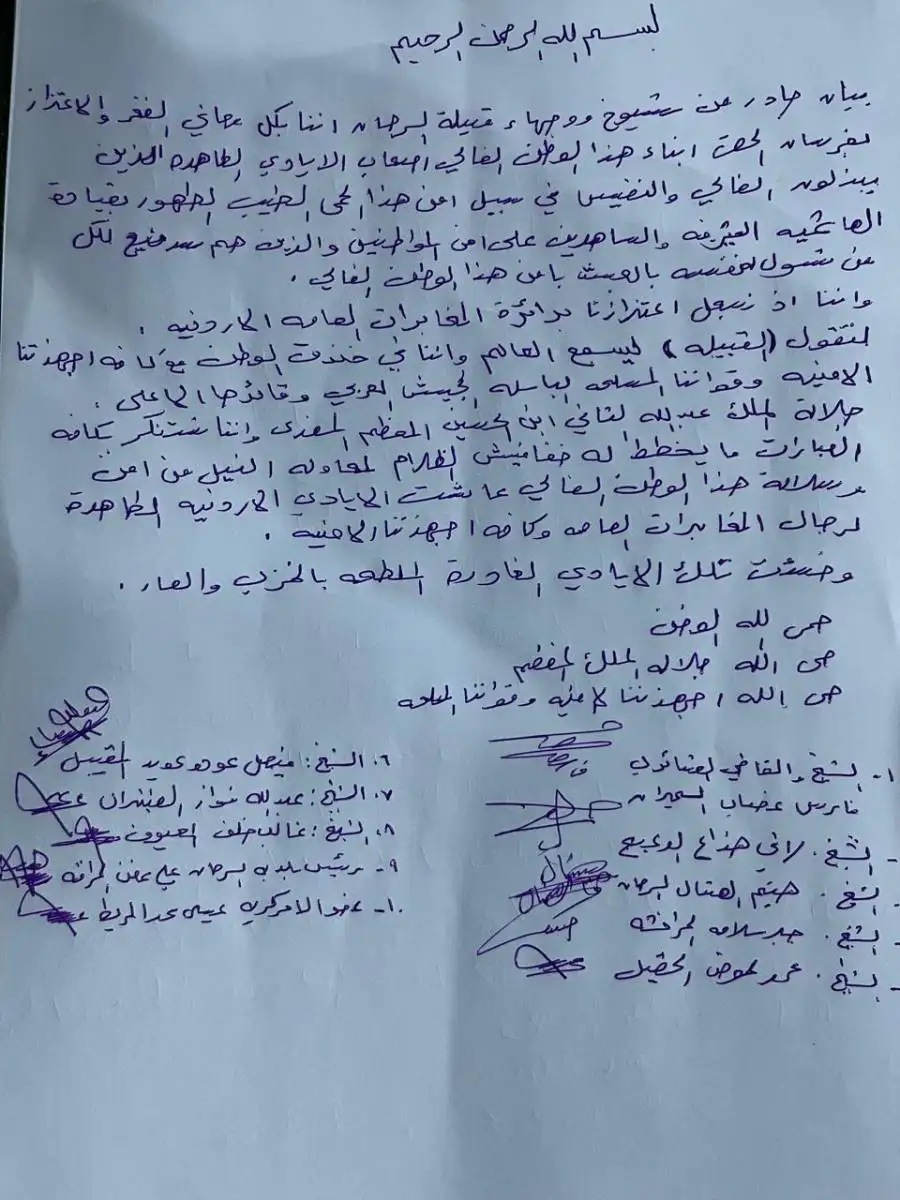 بسم الله الرحمن الرحيم
بيان صادر عن شيوخ ووجهاء قبيلة السرحان اننا بكل معاني الفخر والاعتزاز
بفرسان الحق ابناء هذا الوطن الغالي اصحاب الايادي الطاهره الذين
يبذلون الغالي والنفيس في سبيل امن هذا الحمى الطيب الطهور بقيادة
الهاشميه الشريفه والساهرين على امن المواطنين والذين هم سد منيع لكل
من تسول له نفسه بالعبث بامن هذا الوطن الغالي .
واننا اذ نسجل اعتزازنا بدائرة المخابرات العامه الاردنيه .
لتقول (القبيله) ليسمع العالم واننا في خندق الوطن مع كافه اجهزتنا
الامنيه وقواتنا المسلحه الباسله الجيش العربي وقائدها الاعلى :
جلالة الملك عبدالله الثاني ابن الحسين المعظم المفدى واننا نستنكر بكافه
العبارات ما يخطط له خفافيش الظلام لمحاوله النيل من امن
وسلامة هذا الوطن الغالي عاشت الايادي الاردنيه الطاهرة
لرجال المخابرات العامه وكافه اجهزتنا الامنيه .
وخسئت تلك الايادي الغادرة الملطخه بالخزي والعار .
حمى الله الوطن
حمى الله جلاله الملك المعظم
حمى الله اجهزتنا الامنيه وقواتنا المسلحه
١- الشيخ والقاضي العشائري
فارس عضاب السميران
- الشيخ . لافي هذاع
- الشيخ . هيثم السرحان
- الشيخ . سلامه
- الشيخ . محمد عوض
٦. الشيخ : فيصل عوده عويد
٧. الشيخ : عبدالله نواز
٨. الشيخ : غالب خلف
٩- رئيس بلديه السرحان علي
١٠- عضو الامركزيه عيسى